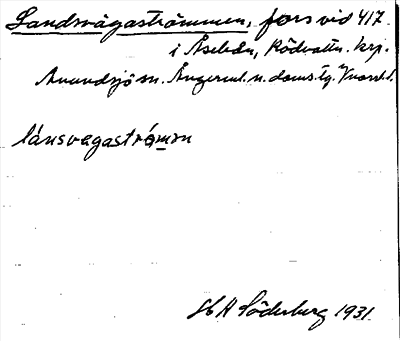 Landsvågaströmmen, fors vid 417
i Åseleån, Rödvattn. krp.
Anundsjö sn. Ångerml. n. doms. lg. V:norrl. l.
lánsvagaströmm
H Söderberg 1931.